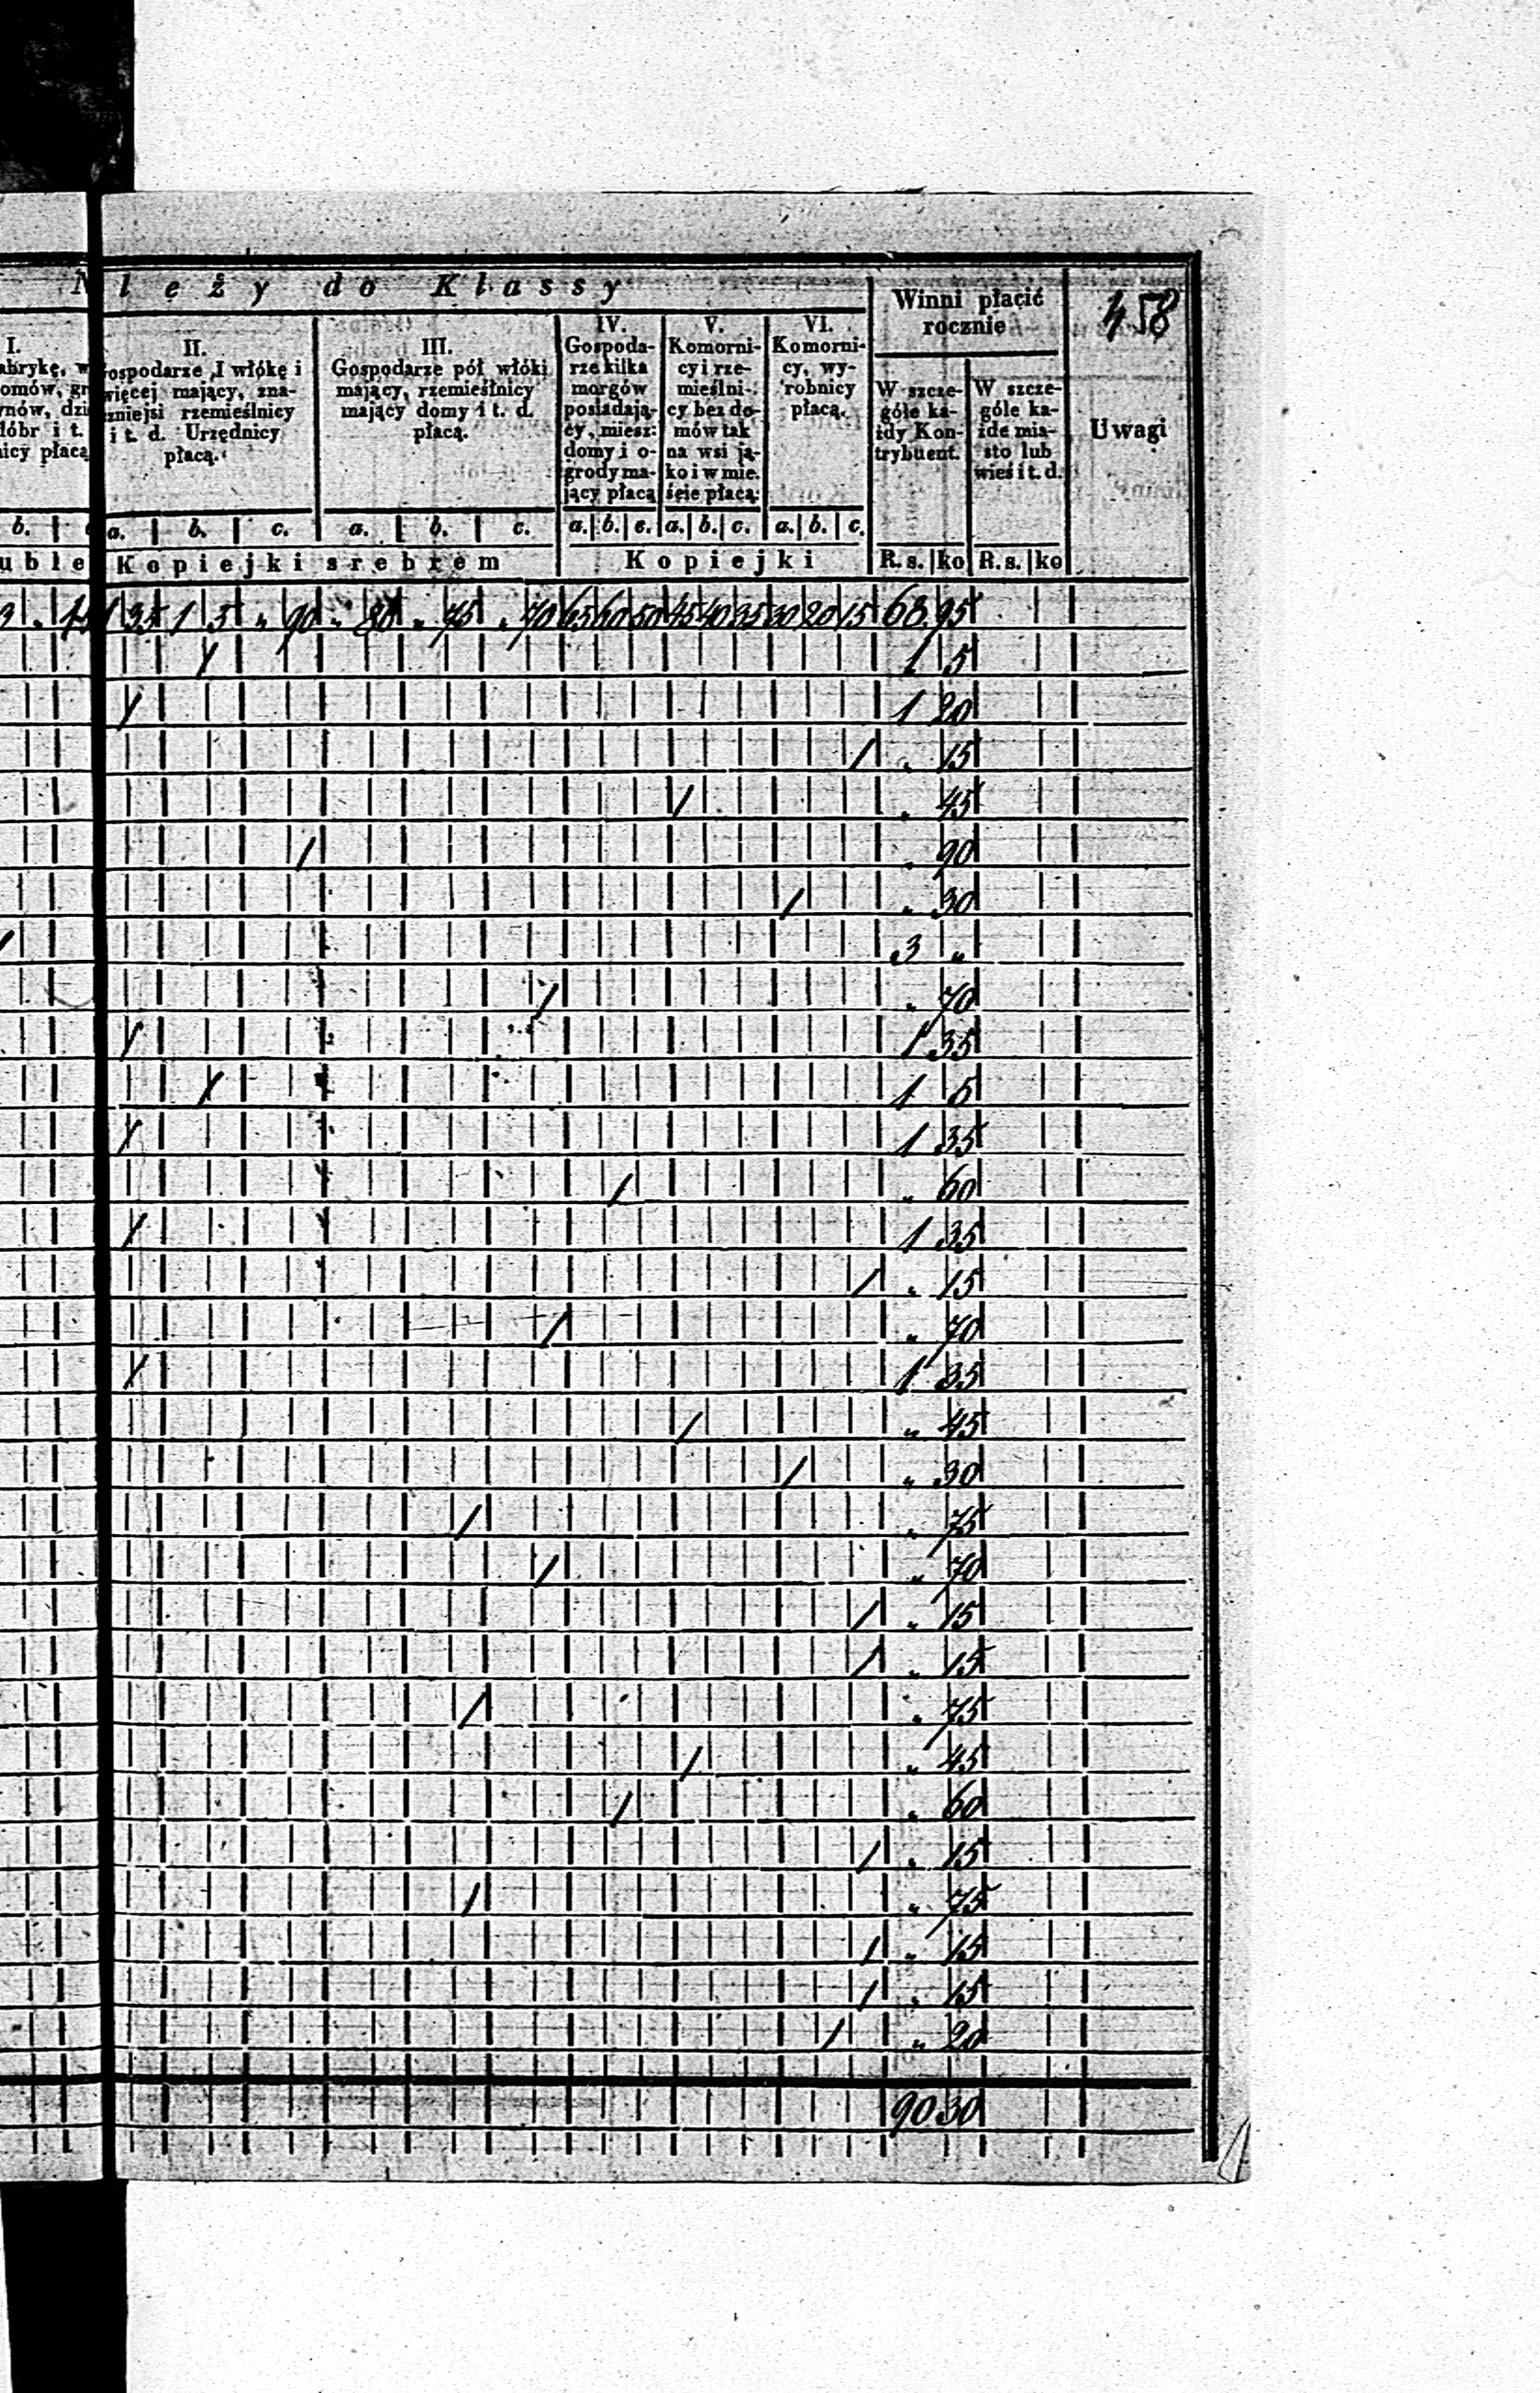 N leży do Klassy
458
Winni płacić
rocznie
Uwagi
I.
abrykę, w
omów, gr
nów, dzi
dóbr i t.
icy płacą
II.
ospodarze 1 włókę i
więcej mający, zna-
czniejsi rzemieślnicy
i t. d. Urzędnicy
płacą.
III.
Gospodarze pół włóki
mający, rzemieślnicy
mający domy i t. d.
płacą.
IV.
Gospoda-
rze kilka
morgów
posiadają-
cy, miesz:
domy i o-
grody ma-
jący płacą
V.
Komorni-
cy i rze-
mieślni-
cy bez do-
mów tak
na wsi ja-
ko i w mie.
ście płacą:
VI.
Komorni-
cy, wy-
robnicy
płacą.
W szcze-
góle ka-
żdy Kon-
trybuent.
W szcze-
góle ka-
żde mia-
sto lub
wieś i t. d.
b. a. b. c. a. b. c. a. b. c. a. b. c. a. b. c.
uble Kopiejki srebrem Kopiejki R. s. ko R. s. ko
1 35 1 5 „ 90 „ 80 „ 75 „ 70 65 60 50 45 40 35 30 20 15 68 95
/ 1 5
/ 1 20
/ „ 15
/ „ 45
/ „ 90
/ „ 30
/ 3 „
/ „ 70
/ 1 35
/ 1 5
/ 1 35
/ „ 60
/ 1 35
/ „ 15
/ „ 70
/ 1 35
/ „ 45
/ „ 30
/ „ 75
/ „ 70
/ „ 15
/ „ 15
/ „ 75
/ „ 45
/ „ 60
/ „ 15
/ „ 75
/ „ 15
/ „ 15
/ „ 20
90 30